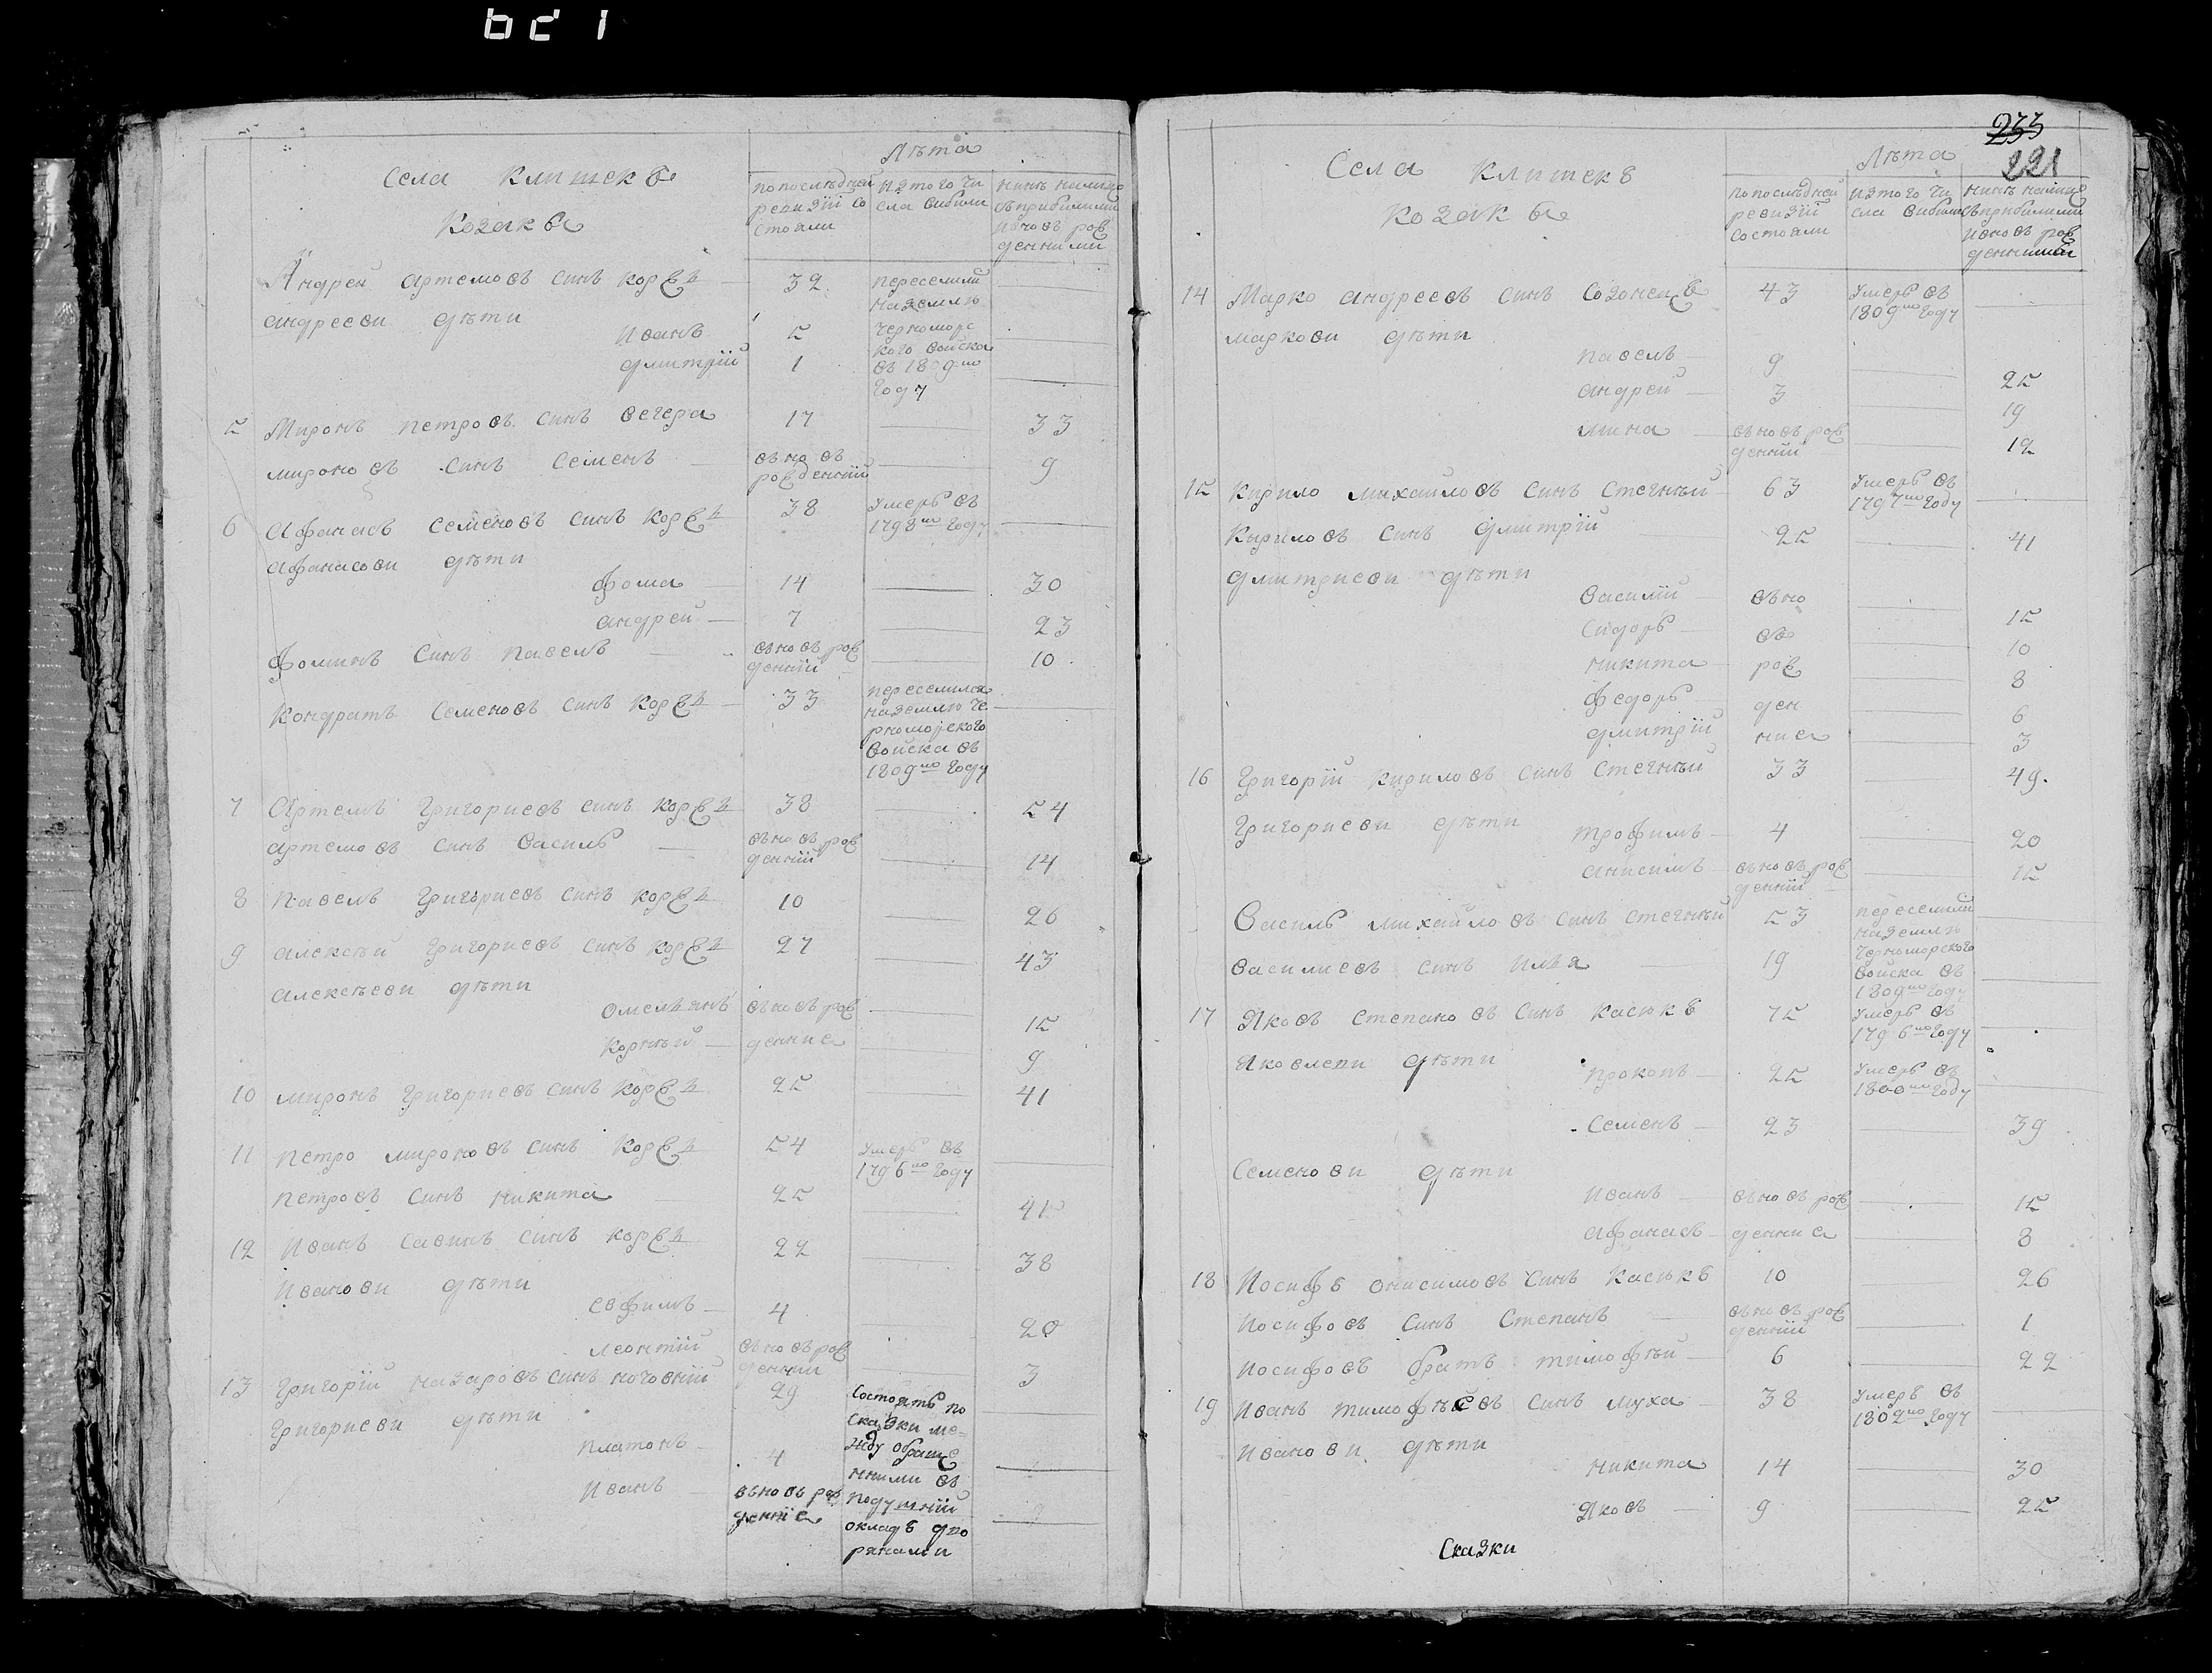 Села Клишекъ
Козаки
Лѣта
по последней ревизіи состояли
изтого числа выбыли
нинѣ налицо съприбилими и вновъ рожденними
Андрей Артемовъ синъ Коржъ 32 переселили
на землю
Андрееви дѣти
Иванъ 5 Черноморс
кого войска
Дмитрій 1 въ 1809мъ
году
5 Миронъ Петровъ синъ Вечера 17 33
Мироновъ синъ Семенъ вновъ рожденній 9
6 Афанасъ Семеновъ синъ Коржъ 38 Умеръ въ
1798мъ году
Афанасови дѣти
Фома 14 30
Андрей 7 23
Фоминъ синъ Павелъ вновъ рожденній 10
Кондратъ Семеновъ синъ Коржъ 33 переселился
на землю Че
рноморского
войска въ
1809мъ году
7 Артемъ Григориевъ синъ Коржъ 38 54
Артемовъ синъ Василь вновъ рожденній 14
8 Павелъ Григориевъ синъ Коржъ 10 26
9 Алексѣй Григориевъ синъ Коржъ 27 43
Алексѣеви дѣти
Омельянъ вновъ рож 15
Корнѣй дение 9
10 Миронъ Григориевъ синъ Коржъ 25 41
11 Петро Мироновъ синъ Коржъ 54 Умеръ въ
1796мъ году
Петровъ синъ Никита 25 41
12 Иванъ Савинъ синъ Коржъ 22 38
Иванови дѣти
Евфимъ 4 20
Леонтій вновъ рожденни 3
13 Григорій Назаровъ синъ 29 Состоятъ по
сказки ме=
Григориеви дѣти
Платонъ 4 жду обраще
нними въ
Иванъ вновъ рожденніе подушній
окладъ дво
рянами
233
221
Села Клишекъ
Козаки
Лѣта
по последней ревизіи состояли
изтого числа выбили
нинѣ налицо съприбилими и вновъ рожденними
14 Марко Андреевъ синъ Созонецъ 43 Умеръ въ
1809мъ году
Маркови дѣти
Павелъ 9 25
Андрей 3 19
Мина вновъ рожденній 12
15 Кирило Михайловъ синъ Стегнѣй 63 Умеръ въ
1797мъ году
Кириловъ синъ Дмитрій 25 41
Дмитриеви дѣти
Василій вно 15
Сидоръ въ 10
Никита рож 8
Федоръ ден 6
Дмитрій ние 3
16 Григорій Кириловъ синъ Стегнѣй 33 49.
Григориеви дѣти
Трофимъ 4 20
Анисимъ вновъ рожденній 15
Василь Михайловъ синъ Стегнѣй 53 переселили
на землю
Василиевъ синъ Илья 19 Черноморского
войска въ
1809мъ году
17 Яковъ Степановъ синъ Касюкъ 75 Умеръ въ
1796мъ году
Яковлеви дѣти
Прокопъ 25 Умеръ въ
1800мъ году
Семенъ 23 39
Семенови дѣти
Иванъ вновъ рож 15
Афанасъ дение 8
18 Иосифъ Онисимовъ синъ Касюкъ 10 26
Иосифовъ синъ Степанъ вновъ рожденній 1
Иосифовъ братъ Тимофѣй 6 22
19 Иванъ Тимофѣевъ синъ Муха 38 Умеръ въ
1802мъ году
Иванови дѣти
Никита 14 30
Яковъ 9 25
Сказки